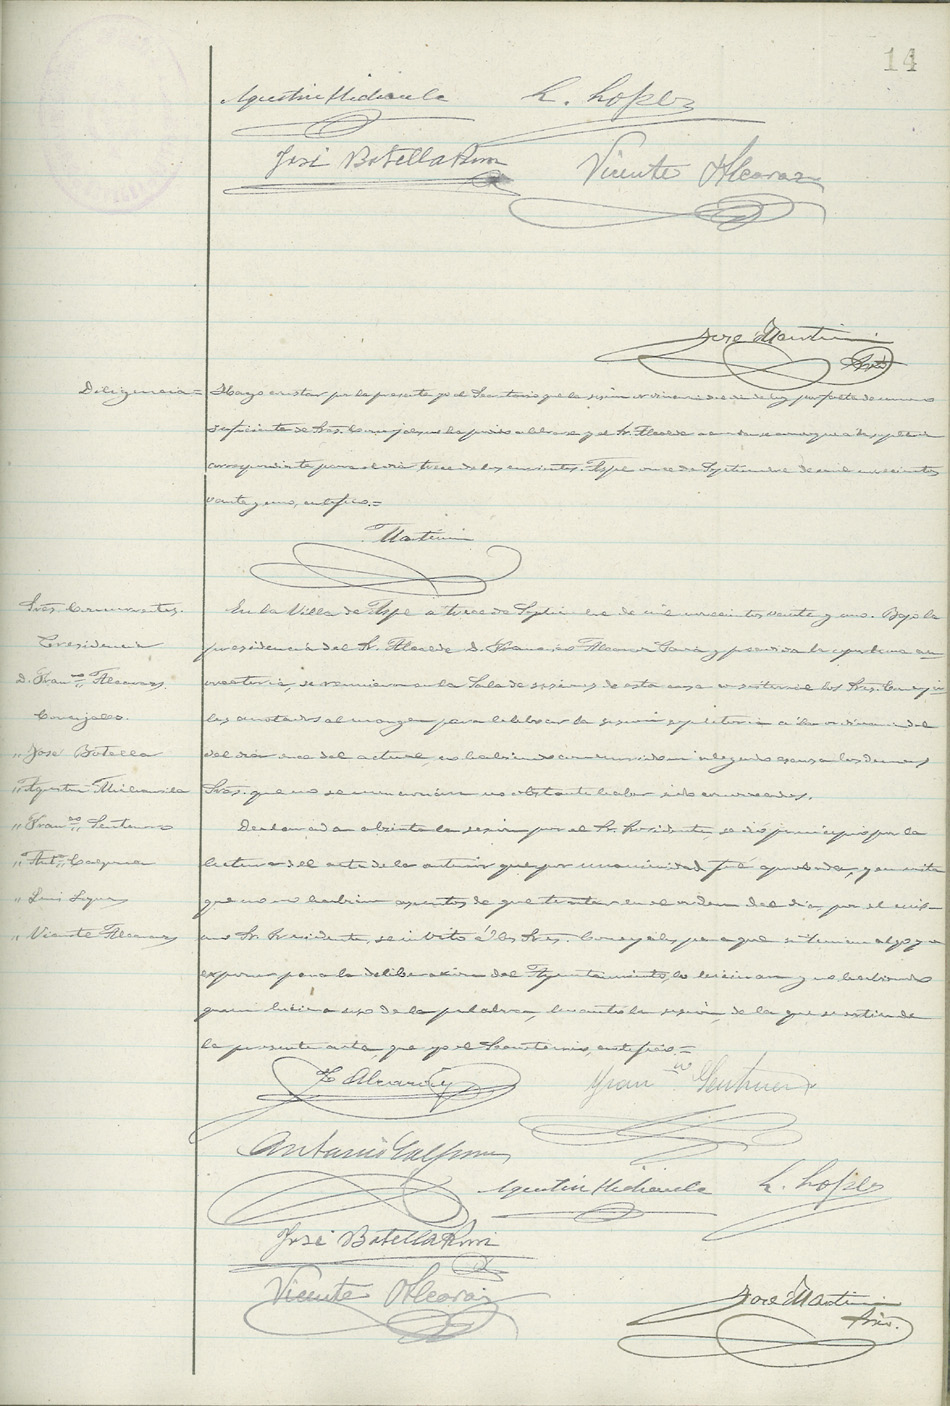 14
Agustin Mirambla L. López
José Botella Vicente Alcaraz
José Martini
Srio
Diligencia = Hago constar por la presente yo el Secretario que la sesión ordinaria de de hoy por falta de numero
suficiente de Sres. Concejales no ha podido celebrarse y el Sr. Alcalde convocar a la supletoria
correspondiente para el dia trece de los corrientes. Aspe once de Septiembre de mil novecientos
veinte y uno, certifico.=
Martini
Sres. Concurrentes.
Presidencia
D. Franco. Alcaraz.
Concejales.
" José Botella
" Agustin
" Franco.
" Anto. Calpena
" Luis Lopez
" Vicente Alcaraz
En la Villa de Aspe a trece de Septiembre de mil novecientos veinte y uno. Bajo la
presidencia del Sr. Alcalde D. Francisco Alcaraz y previa la oportuna con-
vocatoria, se reunieron en la Sala de sesiones de esta casa consistorial los Sres. Conceja-
les anotados al margen para celebrar la sesión supletoria a la ordinaria del
del dia once del actual, no habiendo concurrido ni alegado escusa los demas
Sres. que no se enumeran no obstante haber sido convocados.
Declarada abierta la sesión por el Sr. Presidente, se dió principio por la
lectura del acta de la anterior que por unanimidad fué aprobada, y en vista
que no habian asuntos de que tratar en el orden del dia, por el mis-
mo Sr. Presidente, se invitó á los Sres. Concejales para que si tenian algo que
exponer para la deliberación del Ayuntamiento, lo hicieran y no habiendo
quien hiciera uso de la palabra, levantó la sesión, de la que se estiende
la presente acta, que yo el Secretario, certifico.=
F. Alcaraz Franco
Antonio Calpena
Agustin L. López
José Botella
Vicente Alcaraz
José Martini
Srio.